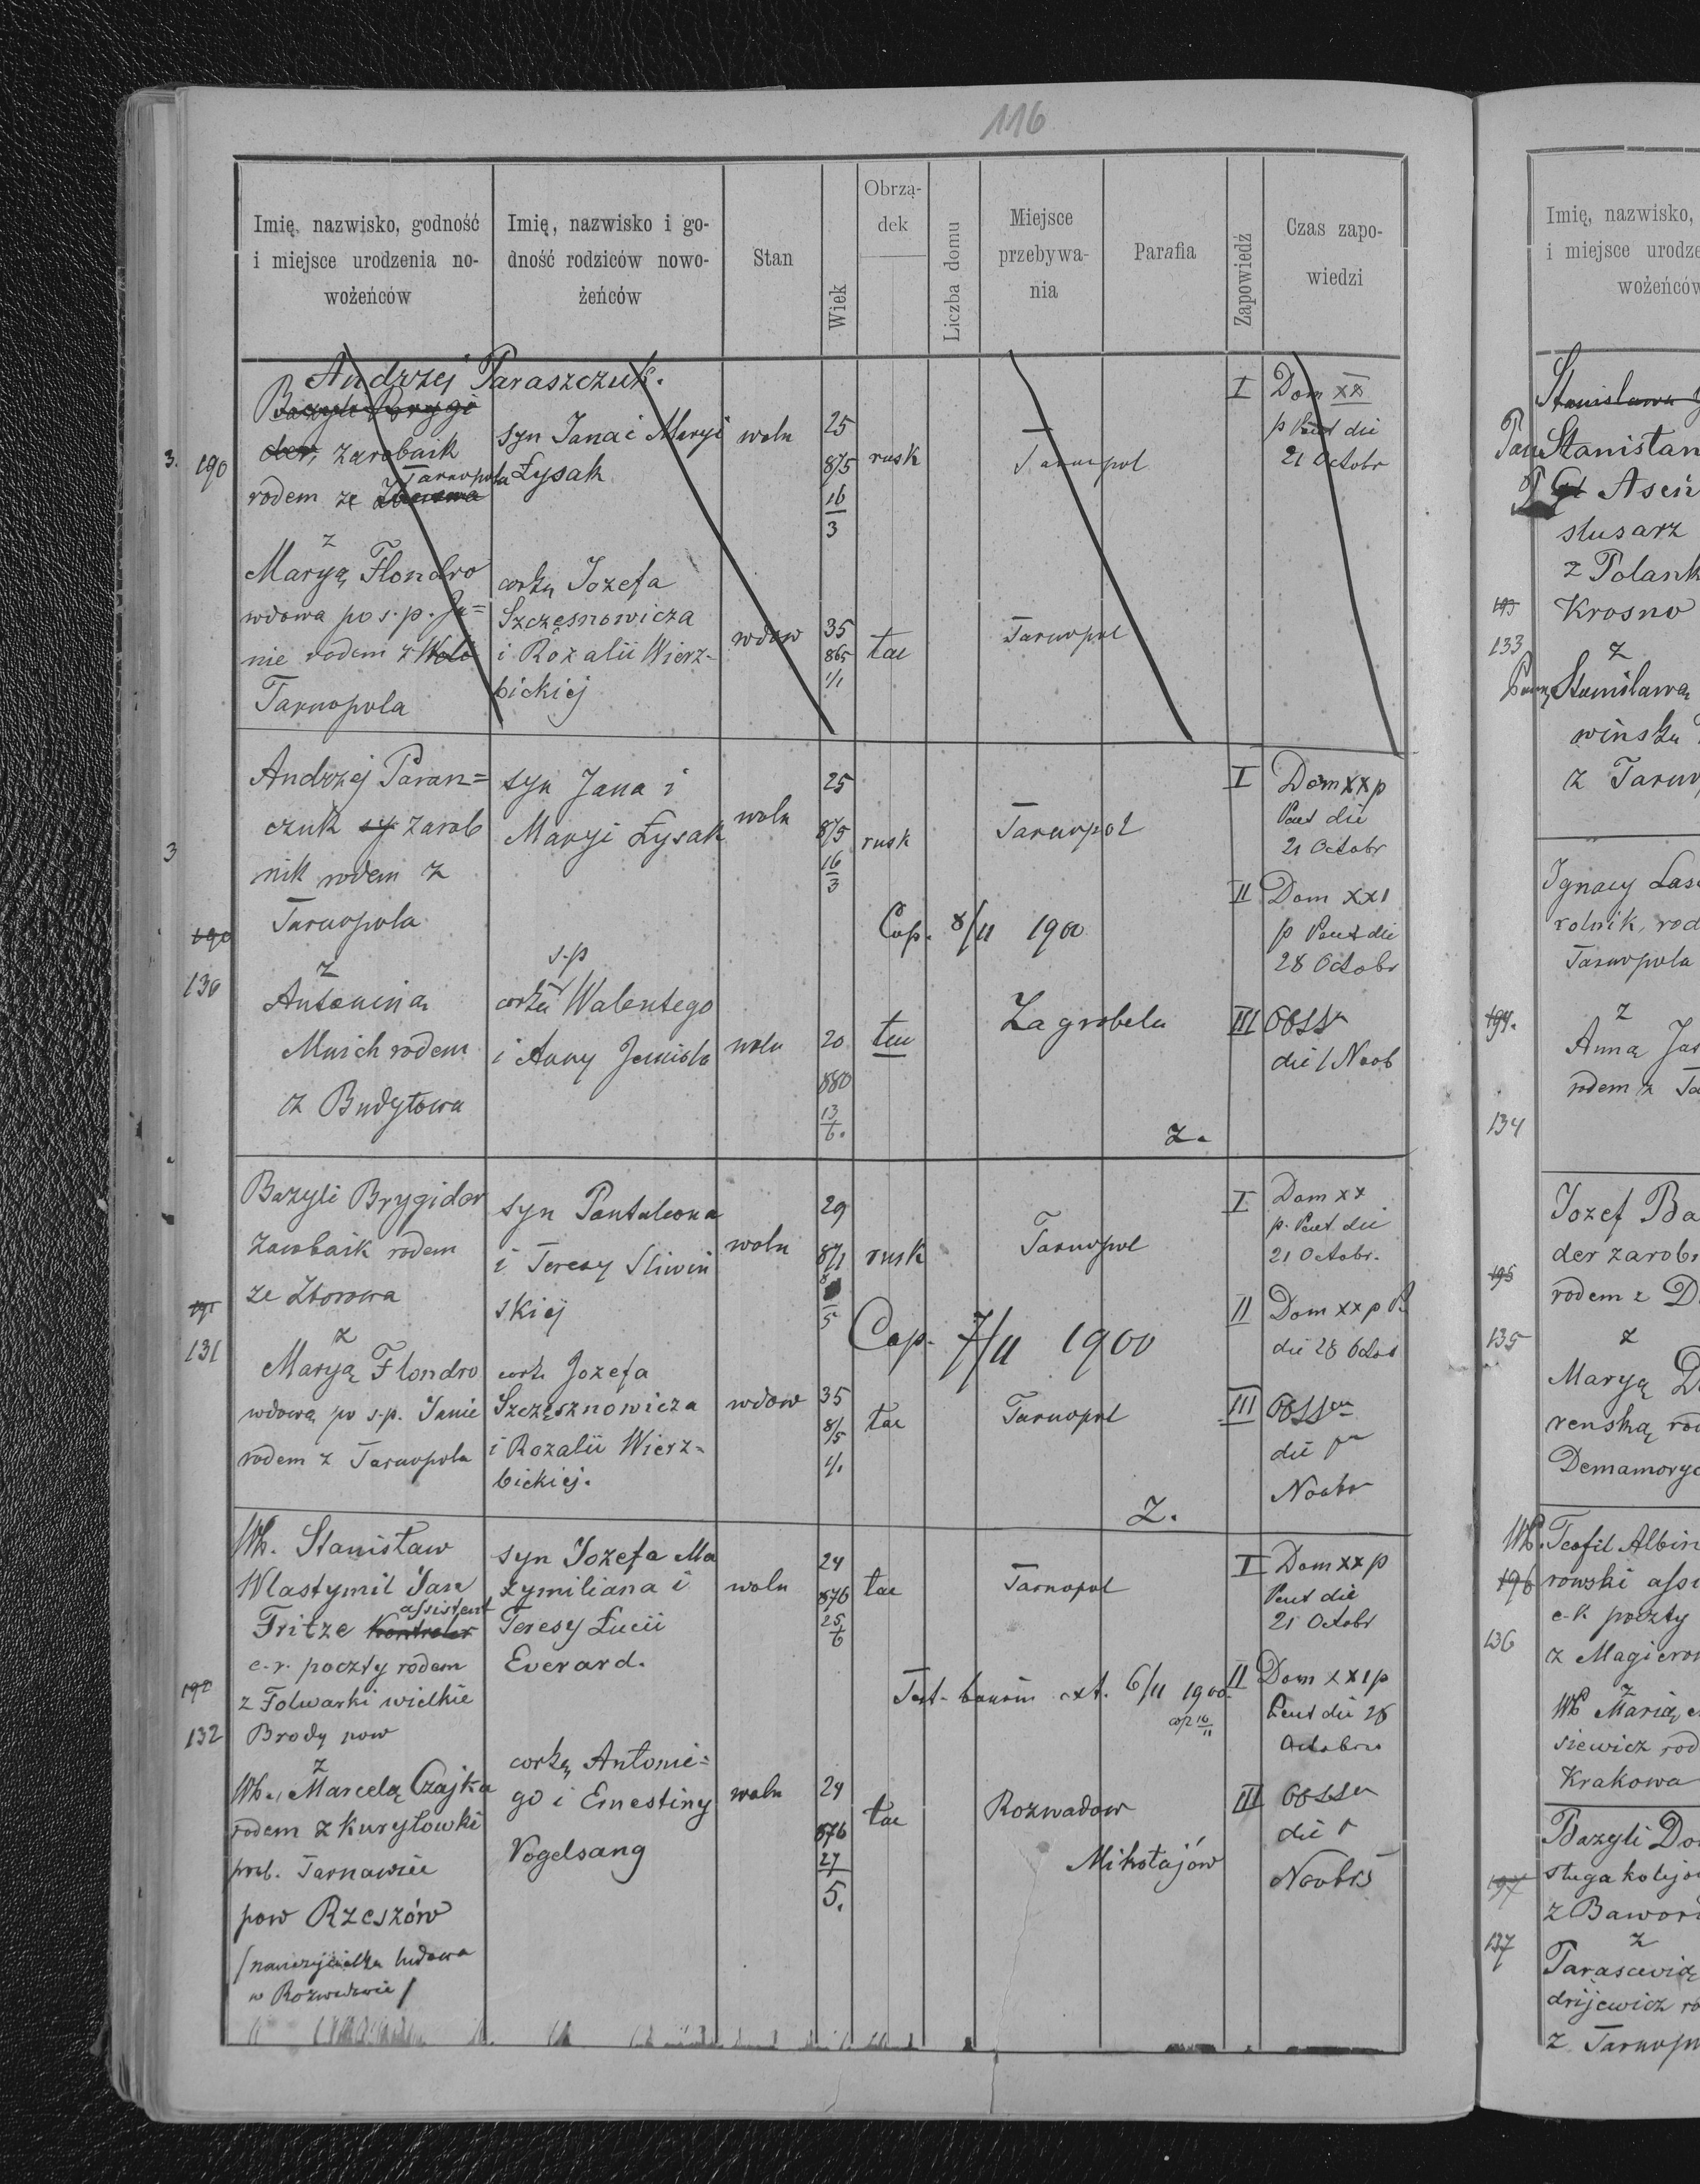 116
Imię, nazwisko, godność
i miejsce urodzenia no-
wożeńców
Imię, nazwisko i go-
dność rodziców nowo-
żeńców
Stan
Wiek
Obrzą-
dek
Liczba domu
Miejsce
przebywa-
nia
Parafia
Zapowiedź
Czas zapo-
wiedzi
3. 190
Andrzej Paraszczuk.
zarobnik
rodem ze Tarnopola
z
Maryą Flondro
wdowa po s.p. Ja=
nie rodem z
Tarnopola
syn Jana i Maryi
Łysak
corką Jozefa
Szczęsnowicza
i Rozalii Wierz-
bickiej
woln
wdow
25
875
16
3
35
865
1/1
rusk
łac
Tarnopol
Tarnopol
I Dom XX
p Pent die
21 Octobr
3
190
130
Andrzej Paran=
czuk sy zarob
nik rodem z
Tarnopola
z
Antonina
Mnich rodem
z Budyłowa
syn Jana i
Maryi Łysak
s.p
corka Walentego
i Anny
woln
woln
25
875
16
3
20
880
13
6.
rusk
Cap. 8/11 1900
Tarnopol
Zagrobela
z.
I Dom XX p
Pent die
21 Octobr
II Dom XXI
p Pent die
28 Octobr
III
die 1 Noob
191
131
Bazyli Brygider
zarobnik rodem
ze Zborowa
z
Maryą Flondro
wdową po s.p. Janie
rodem z Tarnopola
syn Pantaleona
i Teresy Sliwin
skiej
cork Jozefa
Szczęsznowicza
i Rozalii Wierz-
bickiej.
woln
wdow
29
871
8
5
35
1/1
rusk
Cap. 7/11 1900
łac
Tarnopol
Tarnopol
Z.
I Dom XX
p. Pent die
21 Octobr.
II Dom XX p
die 28
III
die
Noobr
192
132
Wh. Stanisław
Wlastymil Jan
assistent
Fritze Kontroler
c.r. poczty rodem
z Folwarki wielkie
Brody pow
z
Wh. Marcelą Czajka
rodem z Kuryłowki
prob. Tarnawiec
pow Rzeszów
/nauczycielka ludowa
w Rozwadowie/
syn Jozefa Ma
xymiliana i
Teresy Łucii
Everard.
corką Antonie=
go i Ernestiny
Vogelsang
woln
woln
24
876
25
6
24
876
27
5.
łac
łac
Tarnopol
Test. 6/11 1900
cop 16/11
Rozwadow
Mikołajów
I Dom XX p
Pent die
21 Octobr
II Dom XXI p
Pent die 28
III
die 1
Imię, nazwisko,
i miejsce urodze
wożeńców
Stanisława
Stanisław
Aseń
slusarz
z Polank
Krosno
133
z
Stanisławą
wińską
z Tarnop
Ignacy
rolnik, rod
Tarnopola
194.
z
Anną
rodem z Ta
134
Jozef Ba
der zarob
rodem z
195
z
135
Maryą
renską
Demamoryc
Wh. Teofil Albin
196 rowski assi
c.k. poczty
136
z Magierow
z
Wh Marią
siewicz rod
Krakowa
Bazyli Do
sługa kolejo
197
z Bawor
137
z
Tarasewią
drijewicz
z Tarnop